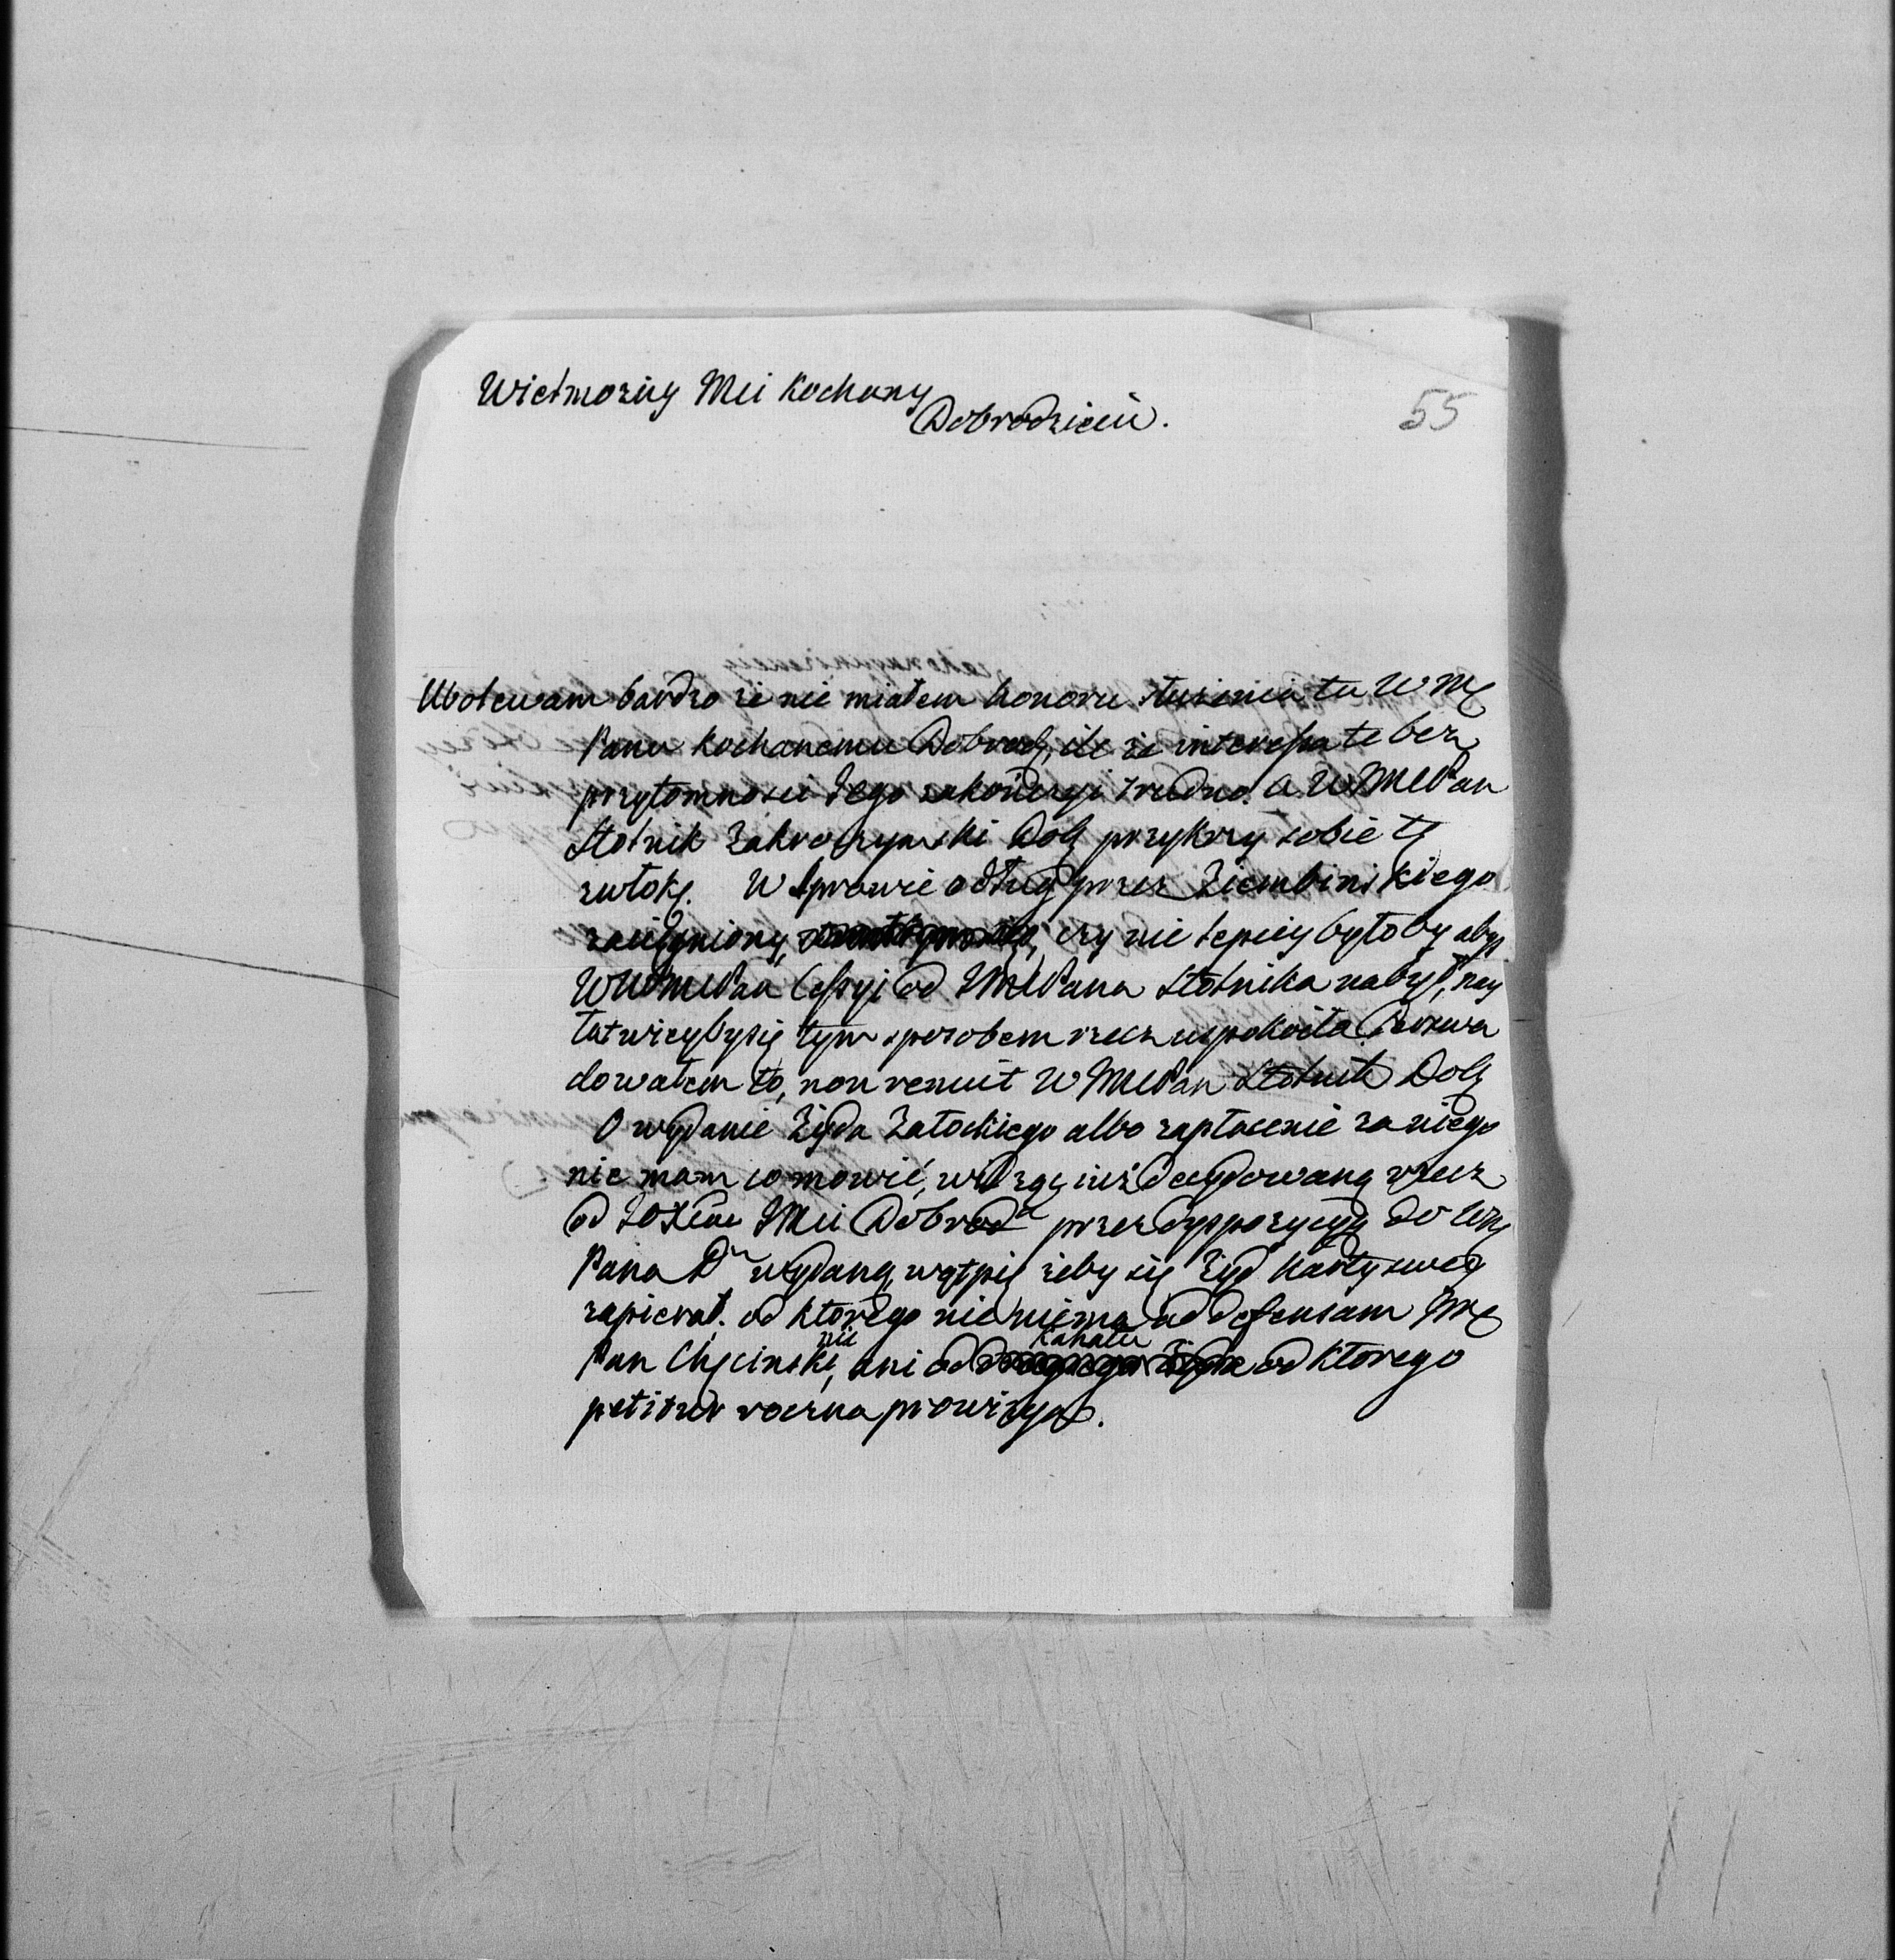 Wielmozny Mci Kochany
Dobrodzieiu.
55
Ubolewam bardzo że nie miałem honoru służenia tu W Mę
Panu kochanemu Dobrodz, ile że interessa te bez
przytomnosci Jego zakończyc trudno. a WJMC Pan
Stolnik Zakroczymski Dob przykrzy sobie tę
zwłokę. W sprawie o dług przez Ziembinskiego
zaciągniony, czy nie lepiey byłoby abyś
WWMC Pan Cessyi od JMC Pana Stolnika nabył, nay
łatwieybysię tym sposobem rzecz uspokoiła. Perswa
dowałem to, non renuit WJMC Pan Stolnik Dob
O wydanie Żyda Załockiego albo zapłacenie za niego
nie mam co mowić, widzę iuż decydowaną rzecz
od JOXcia JMci Dobrod przez dyspozycyą do WM
Pana D wydaną, wątpię żeby się Żyd Karty swey
zapierał. od ktorego nic niema ad defensam JMę
Pan Chęcinski, nic ani od Kahału od ktorego
petitur roczna prowizya.